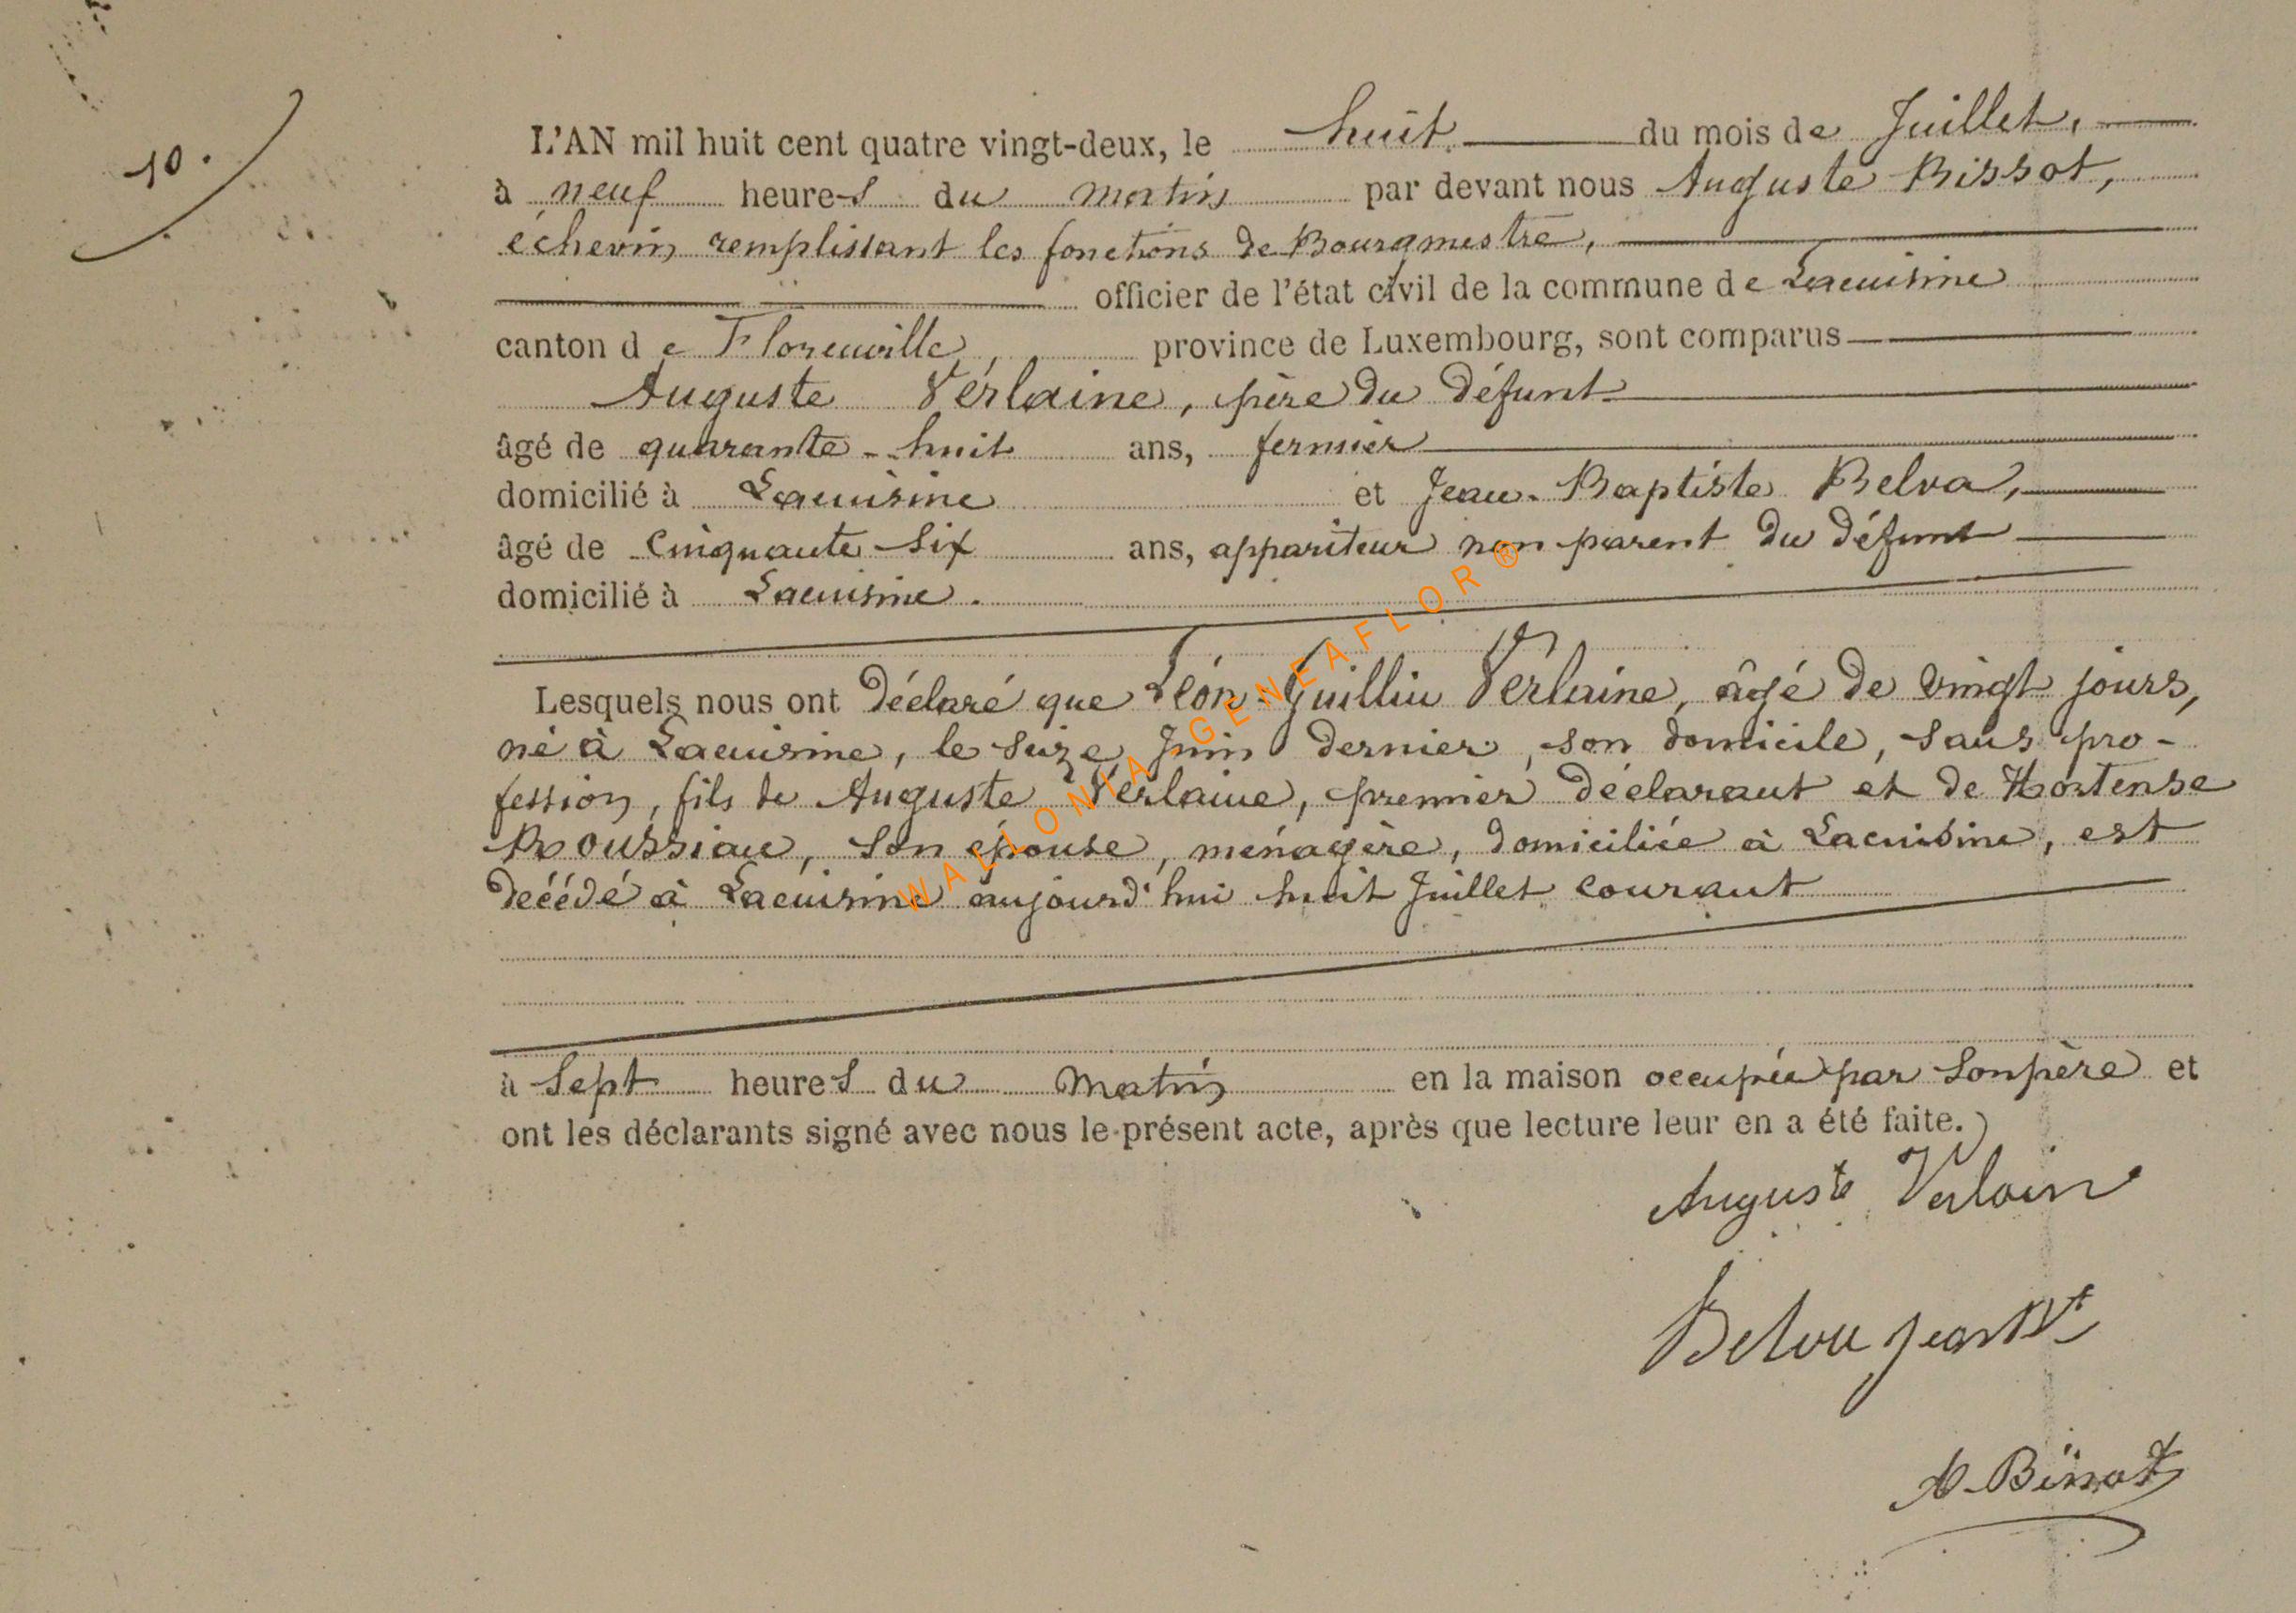 10.
L'AN mil huit cent quatre vingt-deux, le huit du mois de Juillet,
à neuf heures du matin par devant nous Auguste Bissot,
échevin remplissant les fonctions de Bourgmestre,
officier de l'état civil de la commune de Lacuisine
canton de Florenville, province de Luxembourg, sont comparus
Auguste Verlaine, père du défunt
âgé de quarante-huit ans, fermier
domicilié à Lacuisine et Jean-Baptiste Belva,
âgé de Cinquante Six ans, appariteur non parent du défunt
domicilié à Lacuisine.
Lesquels nous ont déclaré que Léon-Guillin Verlaine, âgé de vingt jours,
né à Lacuisine, le seize Juin dernier, son domicile, sans pro-
fession, fils de Auguste Verlaine, premier déclarant et de Hortense
Roussiau, son épouse, ménagère, domiciliée à Lacuisine, est
décédé à Lacuisine aujourd'hui huit Juillet courant
à Sept heures du Matin en la maison occupée par son père et
ont les déclarants signé avec nous le présent acte, après que lecture leur en a été faite.
Auguste Verlain
Belva Jean Bt
A. Bissot
WALLONIA GENEAFLOR ®